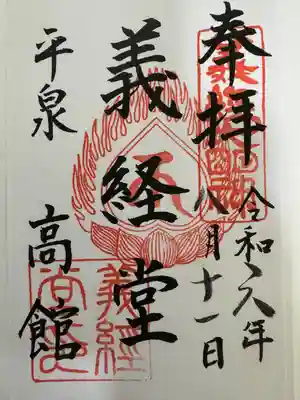 奉拝
令和六年
八月十一日
義経堂
平泉 高館
義經